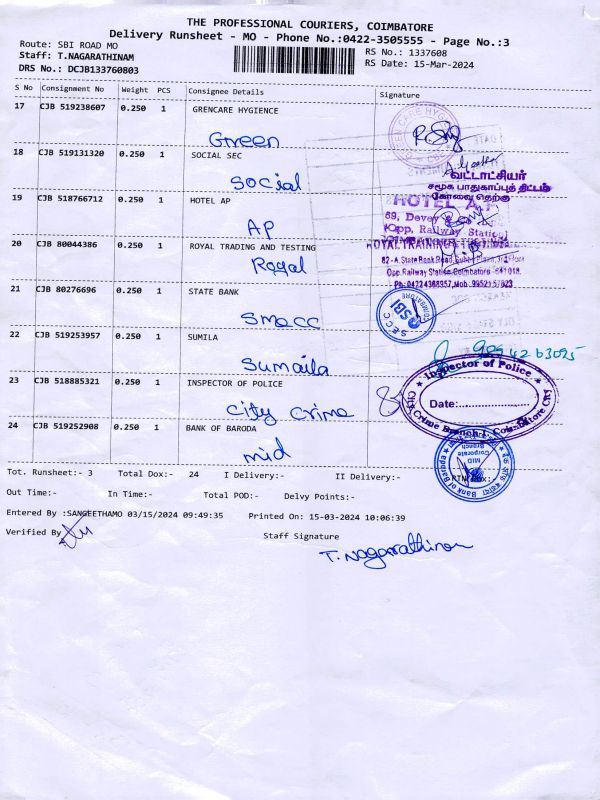 THE PROFESSIONAL COURIERS, COIMBATORE
Delivery Runsheet - MO - Phone No.:0422-3505555 - Page No.:3
Route: SBI ROAD MO
RS No.: 1337608
Staff: T.NAGARATHINAM
RS Date: 15-Mar-2024
DRS No.: DCJB133760803
S No Consignment No Weight PCS Consignee Details Signature
17 CJB 519238607 0.250 1 GRENCARE HYGIENCE
Green
18 CJB 519131320 0.250 1 SOCIAL SEC
Social
வட்டாட்சியர்
சமூக பாதுகாப்புத் திட்டம்
கோவை தெற்கு
19 CJB 518766712 0.250 1 HOTEL AP
AP
HOTEL A.P
69, Devey
(Opp. Railway Station)
20 CJB 80044386 0.250 1 ROYAL TRADING AND TESTING
Royal
82-A, State Bank Road,
Opp.Railway Station, Coimbatore - 641 018.
Ph: 04224368957, Mob: 9952157823
21 CJB 80276696 0.250 1 STATE BANK
Smecc
SECC
SBI
COIMBATORE
22 CJB 519253957 0.250 1 SUMILA
Sumaila
23 CJB 518885321 0.250 1 INSPECTOR OF POLICE
City Crime
Inspector of Police
Date:
City Crime Branch Coimbatore City
24 CJB 519252908 0.250 1 BANK OF BARODA
mid
Bank of Baroda
MID
Corporate
Branch
Tot. Runsheet:- 3 Total Dox:- 24 I Delivery:- II Delivery:-
Out Time:- In Time:- Total POD:- Delvy Points:-
Entered By :SANGEETHAMO 03/15/2024 09:49:35 Printed On: 15-03-2024 10:06:39
Verified By
Staff Signature
T. Nagarathinam